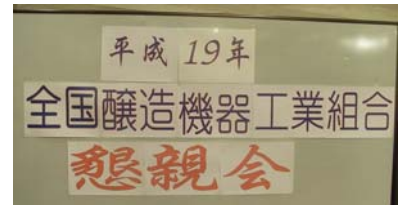 平成 19年
全国醸造機器工業組合
懇親会